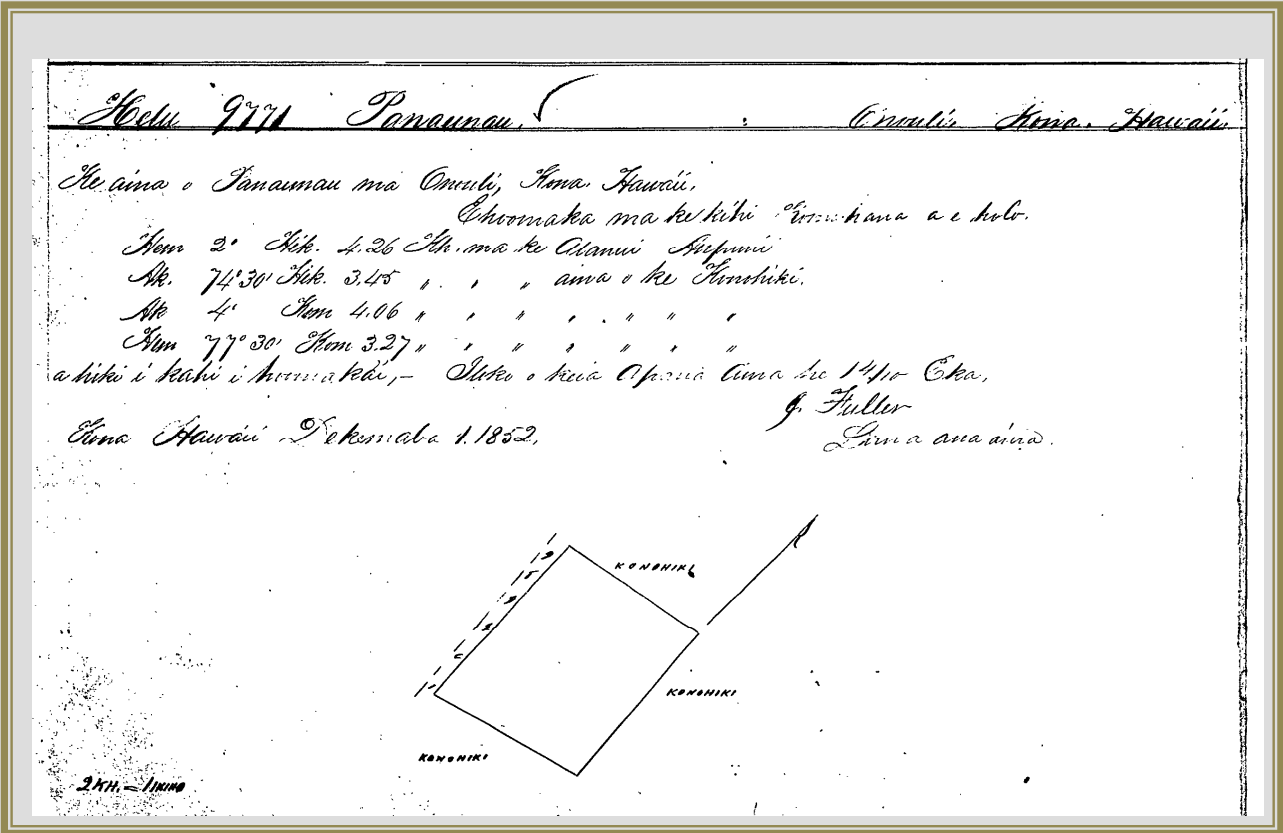 Helu 9771 Panaunau. Onouli, Kona. Hawaii.
Ke aina o Panaunau ma Onouli, Kona. Hawaii.
Ehoomaka ma ke kihi Komohana a e holo.
Hem 2° Hik. 4.26 Kh. ma ke Alanui Aupuni
Ak. 74°30' Hik. 3.45 " " " aina o ke Konohiki.
Ak 4° Kom 4.06 " " " " " " "
Hem 77°30' Kom 3.27 " " " " " " "
a hiki i kahi i hoomakai,- Iliko o keia Apana Aina he 14/10 Eka.
J. Fuller
Kona Hawaii Dekemaba 1. 1852. Luna ana aina.
KONOHIKI
KONOHIKI
KONOHIKI
2 KH. = 1